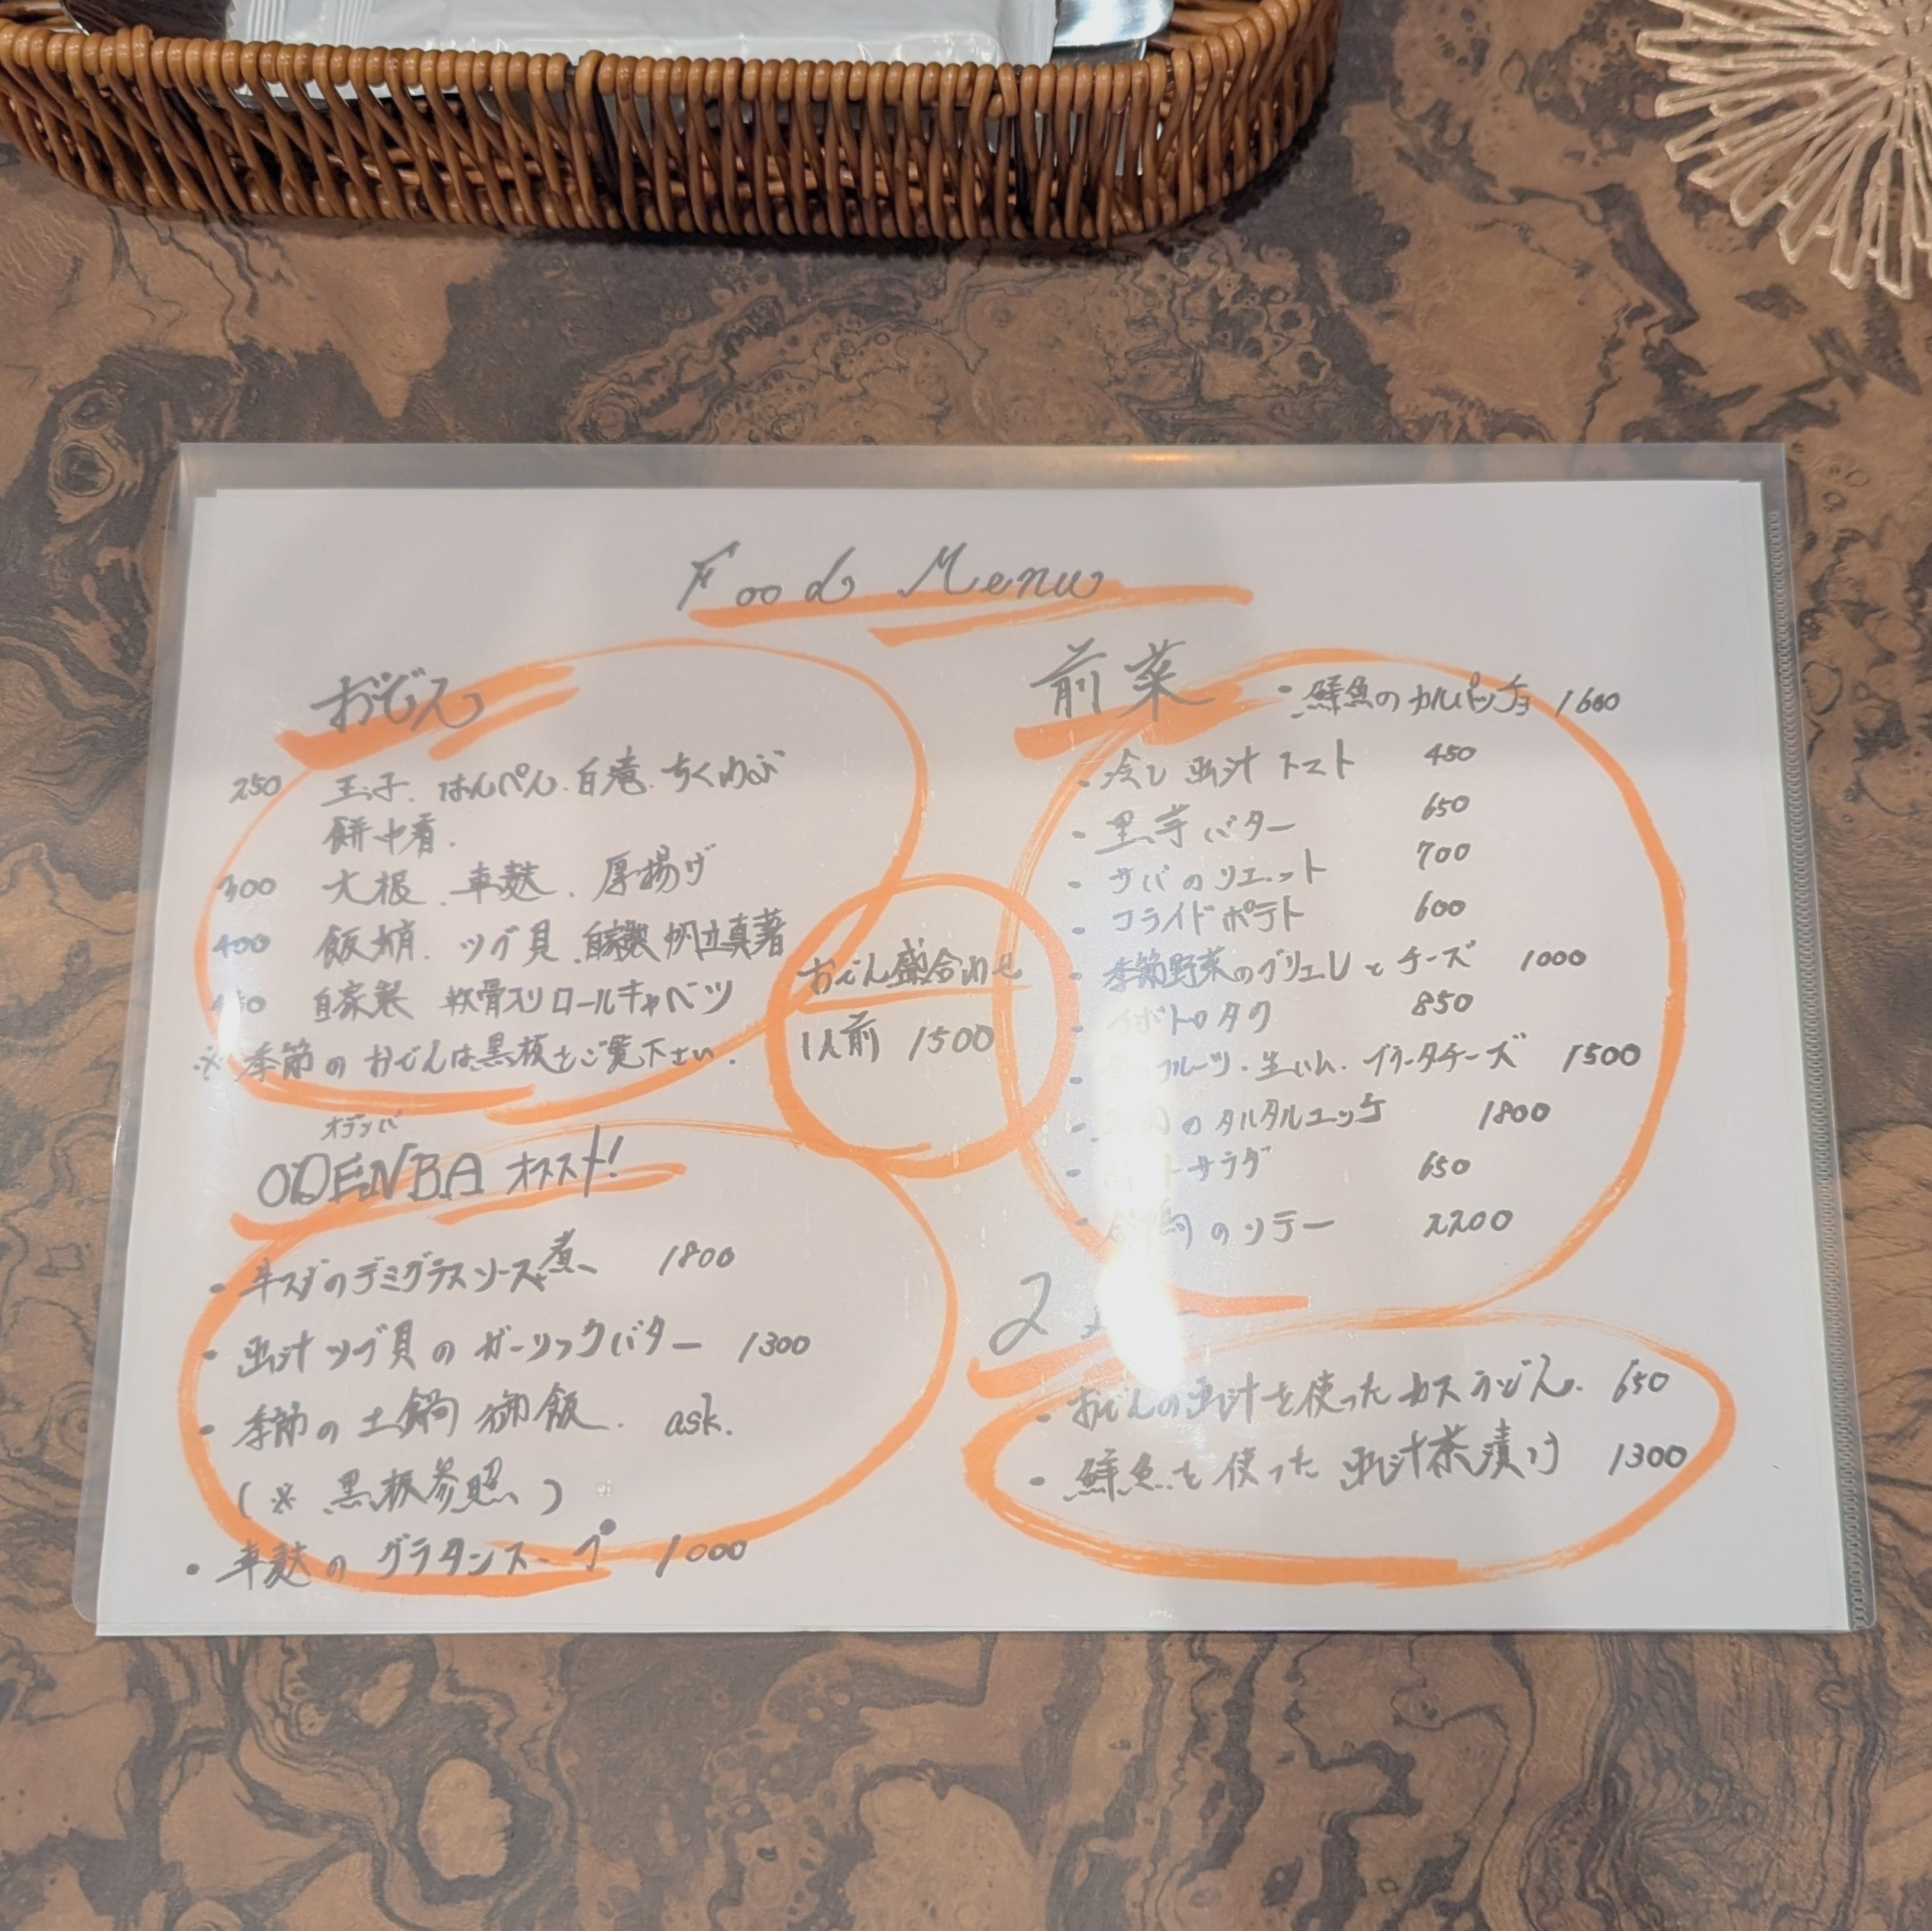 Food Menu
おでん
250 玉子.はんぺん.白滝.ちくわぶ
餅巾着.
300 大根.車麩.厚揚げ
400 飯蛸.ツブ貝.自家製帆立真薯
自家製 軟骨入りロールキャベツ
※季節のおでんは黒板をご覧下さい.
おでん盛合わせ
1人前 1500
オデンバ
ODENBA オススメ!
・牛スジのデミグラスソース煮 1800
・出汁ツブ貝のガーリックバター 1300
・季節の土鍋御飯. ask.
(※黒板参照)
・車麩のグラタンスープ 1000
前菜
・鮮魚のカルパッチョ 1600
・冷し出汁トマト 450
・里芋バター 650
・サバのリエット 700
・フライドポテト 600
・季節野菜のブリュレとチーズ 1000
・タク 850
・フルーツ・生ハム・ブラータチーズ 1500
・のタルタルユッケ 1800
・サラダ 650
・鴨のソテー 2200
・おでんの出汁を使ったカスうどん. 650
・鮮魚を使った出汁茶漬け 1300